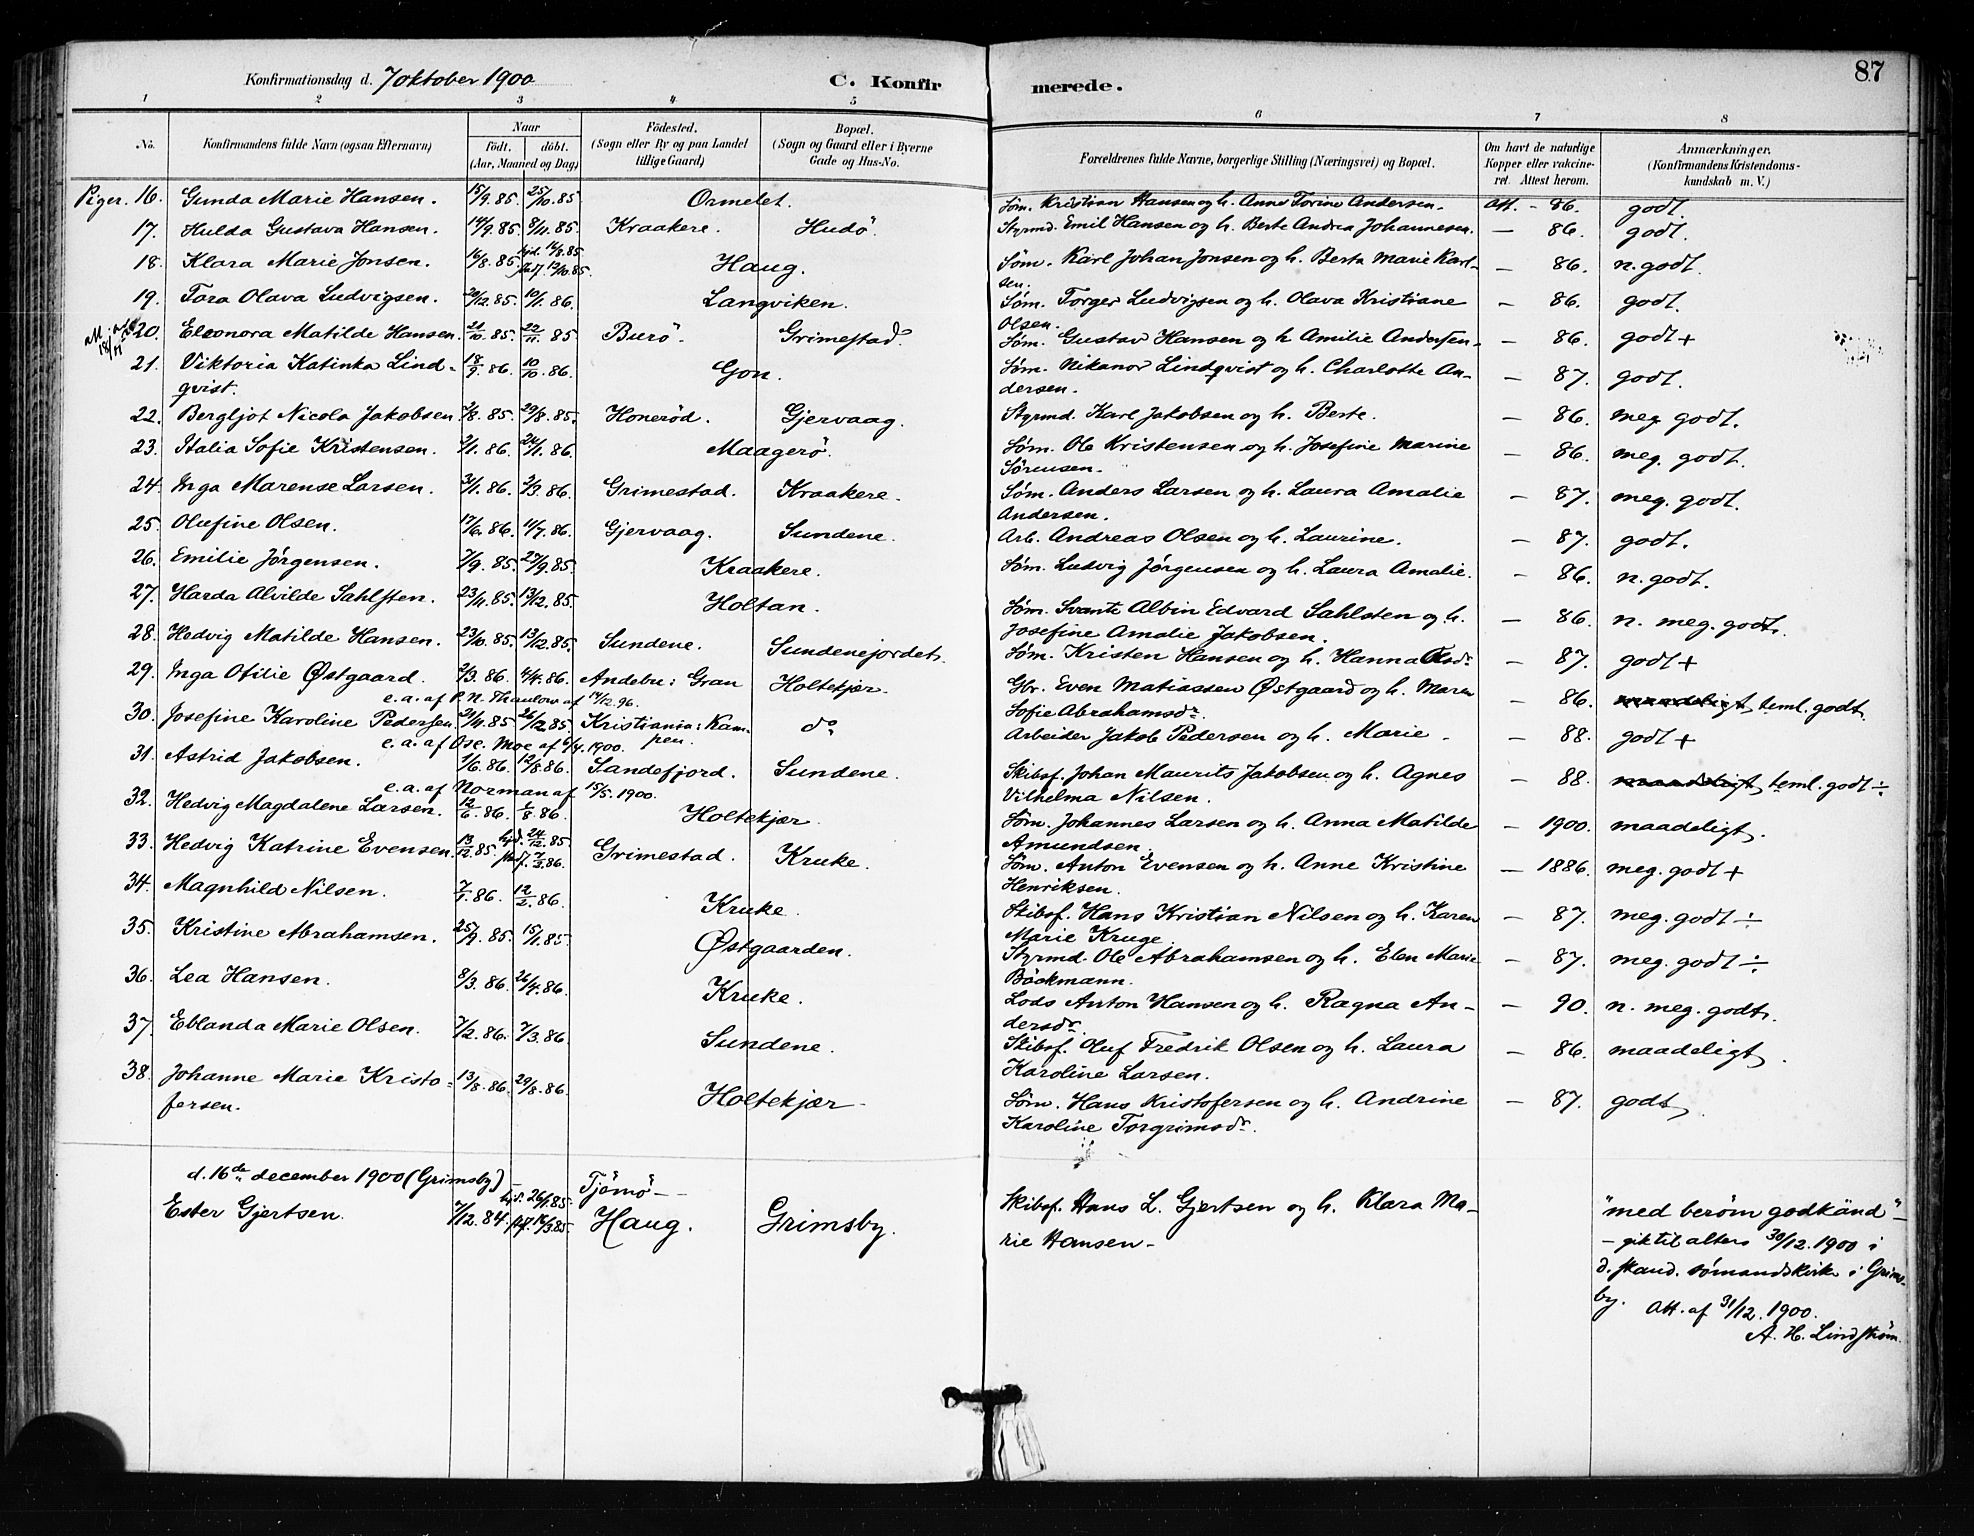 87
Konfirmationsdag d. 7 oktober 1900
C. Konfirmerede.
1 2 3 4 5 6 7 8
No. Konfirmandens fulde Navn (ogsaa Efternavn) Naar födt. döbt. (Aar, Maaned og Dag) Födested. (Sogn eller By og paa Landet tillige Gaard) Bopæl. (Sogn og Gaard eller i Byerne Gade og Hus-No. Forældrenes fulde Navne, borgerlige Stilling (Næringsvei) og Bopæl. Om havt de naturlige Kopper eller vakcineret. Attest herom. Anmærkninger. (Konfirmandens Kristendomskundskab m. V.)
Piger. 16. Gunda Marie Hansen. 15/9.85. 25/10.85 Ormelet. Søm. Kristian Hansen og h. Anne Torine Andersen. Att. - 86. godt.
17. Hulda Gustava Hansen. 14/9.85. 8/11.85. Kraakere. Hudö. Styrmd. Emil Hansen og h. Berte Andrea Johannesen. — 86. godt.
18. Klara Marie Jonsen. 16/8.85. hjd. 16/8.85 stadf. 12/10.85. Haug. Søm. Karl Johan Jonsen og h. Berta Marie Karlsen. — 86. n. godt.
19. Tora Olava Ludvigsen. 20/12.85. 10/1.86. Langviken. Søm. Torger Ludvigsen og h. Olava Kristiane Olsen. — 86. godt.
20. Eleonora Matilde Hansen. 21/10.85. 22/11.85 Burö. Grimestad. Søm. Gustav Hansen og h Amilie Andersen — 86. godt +
21. Viktoria Katinka Lindqvist. 18/9.86. 10/10.86. Gon. Søm. Nikanor Lindqvist og h. Charlotte Andersen. — 87. godt.
22. Bergljot Nicola Jakobsen 2/8.85. 29/8.85. Honerød. Gjervaag. Styrmd. Karl Jakobsen og h. Berte. — 86. meg. godt.
23. Italia Sofie Kristensen. 2/1.86. 24/1.86. Maagerö. Søm. Ole Kristensen og h. Josefine Marine Sörensen. — 86. meg. godt.
24. Inga Marense Larsen. 31/1.86. 2/3.86. Grimestad. Kraakere. Søm. Anders Larsen og h. Laura Amalie Andersen. — 87. meg. godt.
25. Olufine Olsen. 17/6.86. 11/7.86. Gjervaag. Sundene. Arb. Andreas Olsen og h. Laurine. — 87. godt.
26. Emilie Jørgensen. 7/9.85. 27/9.85. Kraakere. Søm. Ludvig Jørgensen og h. Laura Amalie. — 86. n. godt.
27. Harda Alvilde Sahlsten. 23/11.85. 13/12.85. Holtan. Søm. Svante Albin Edvard Sahlsten og h. Josefine Amalie Jakobsen. — 86. n. meg. godt.
28. Hedvig Matilde Hansen. 23/10.85. 13/12.85. Sundene. Sundenejordet. Søm. Kristen Hansen og h. Hanna Olsdr. — 87. godt +
29. Inga Otilie Østgaard. 2/3.86. 4/4.86. Andebu: Gran Holtekjær. Gbr. Even Matiassen Østgaard og h. Maren Sofie Abrahamsdr. — 86. maadeligt, teml. godt.
e. a. af P. N. Thaulow af 14/12.96.
30. Josefine Karoline Pedersen 21/11.85 26/12.85. Kristiania: Kampen. do Arbeider Jakob Pedersen og h. Marie. — 88. godt +
e. a. af Osc. Moe af 6/4.1900.
31. Astrid Jakobsen. 1/6.86. 12/8.86. Sandefjord. Sundene. Skibsf. Johan Maurits Jakobsen og h. Agnes Vilhelma Nilsen. — 88. maadeligt, teml. godt ÷
e. a. af Norman af 15/5.1900.
32. Hedvig Magdalene Larsen. 12/6.86. 1/8.86. Holtekjær. Søm. Johannes Larsen og h. Anna Matilde Amundsen. — 1900. maadeligt.
33. Hedvig Katrine Evensen 13/12.85. hjd. 24/12.85. stadf. 7/3.86. Grimestad. Kruke. Søm. Anton Evensen og h. Anne Kristine Henriksen. — 1886. meg. godt +
34. Magnhild Nilsen. 7/1.86. 12/2.86. Kruke. Skibsf. Hans Kristian Nilsen og h. Karen Marie Kruge. — 87. meg. godt ÷
35. Kristine Abrahamsen. 25/9.85. 15/11.85. Østgaarden. Styrmd. Ole Abrahamsen og h. Elen Marie Böckmann. — 87. meg. godt ÷
36. Lea Hansen. 8/3.86. 26/4.86. Kruke. Lods Anton Hansen og h. Ragna Andersdr. — 90. n. meg. godt.
37. Eblanda Marie Olsen. 7/2.86. 7/3.86. Sundene. Skibsf. Oluf Fredrik Olsen og h. Laura Karoline Larsen. — 86. maadeligt.
38. Johanne Marie Kristofersen. 13/8.86. 29/8.86. Holtekjær. Søm. Hans Kristofersen og h. Andrine Karoline Torgrimsdr. — 87. godt.
d. 16de december 1900 (Grimsby) —
Ester Gjertsen. 7/12.84. hjd. 26/1.85. Tjömö — Haug. Grimsby. Skibsf. Hans L. Gjertsen og h. Klara Marie Hansen —
"med beröm godkänd" —
— gik til alters 30/12.1900 i
d. skand. sømandskirke i Grimsby.
Att. af 31/12.1900.
A. H. Lindstrøm.